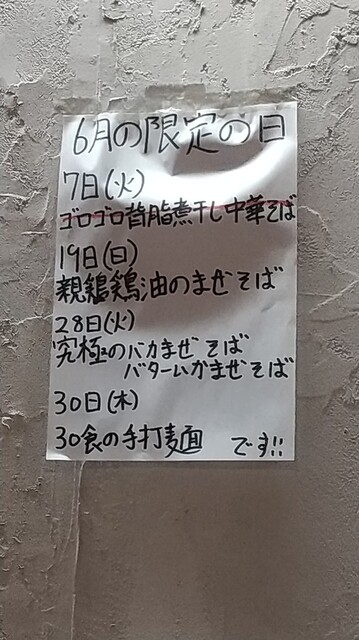 6月の限定の日
7日(火)
ゴロゴロ背脂煮干し中華そば
19日(日)
親鶏鶏油のまぜそば
28日(火)
究極のバカまぜそば
バタームかまぜそば
30日(木)
30食の手打麺
です!!